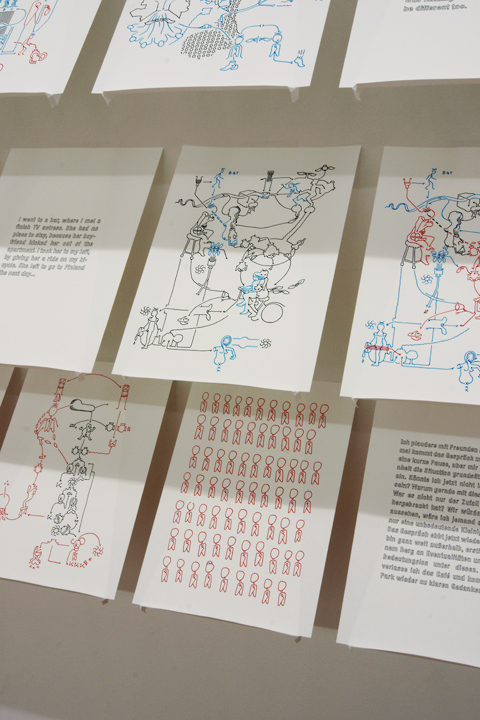 be different too.
I went to a bar, where I met a
finish TV actress. She had no
place to stay, because her boy-
friend kicked her out of the
apartment. I took her to my loft,
by giving her a ride on my bi-
cycle. She left to go to Finland
the next day...
Bar
Bar
Ich plaudere mit Freunden
mal kommt das Gespräch
eine kurze Pause, aber mir
heit die Situation
ein. Könnte ich jetzt nicht
sein? Warum gerade mit
War es nicht nur der Zufall
hergebracht hat? Wir
aussehen, wäre ich jemand
nur eine unbedeutende
Das Gespräch ebbt jetzt
bin ganz weit außerhalb,
nem berg an Eventualitäten
Bedeutungslos unter diesen.
verlasse ich das Café und
Park wieder zu klaren